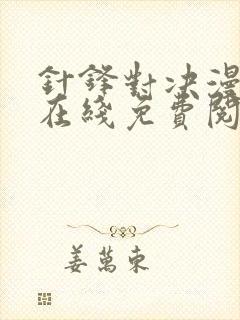 針鋒對決漫
在綫免費閱
姜萬東